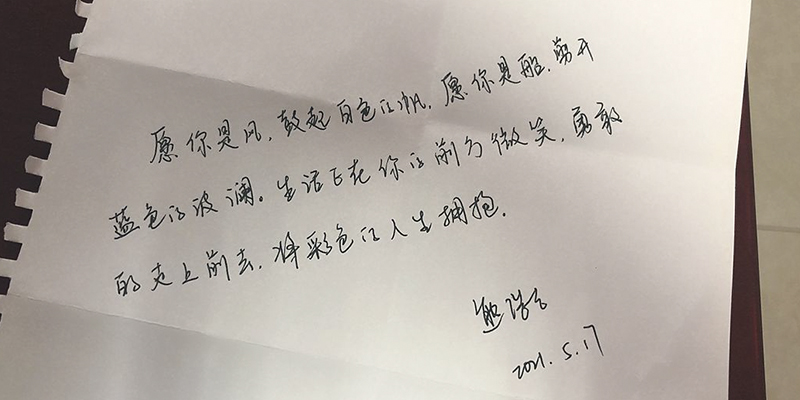 愿你是风，鼓起白色的帆，愿你是船，剪开
蓝色的波澜。生活正在你的前方微笑，勇敢
的走上前去，将彩色的人生拥抱。
熊浩
2021.5.17